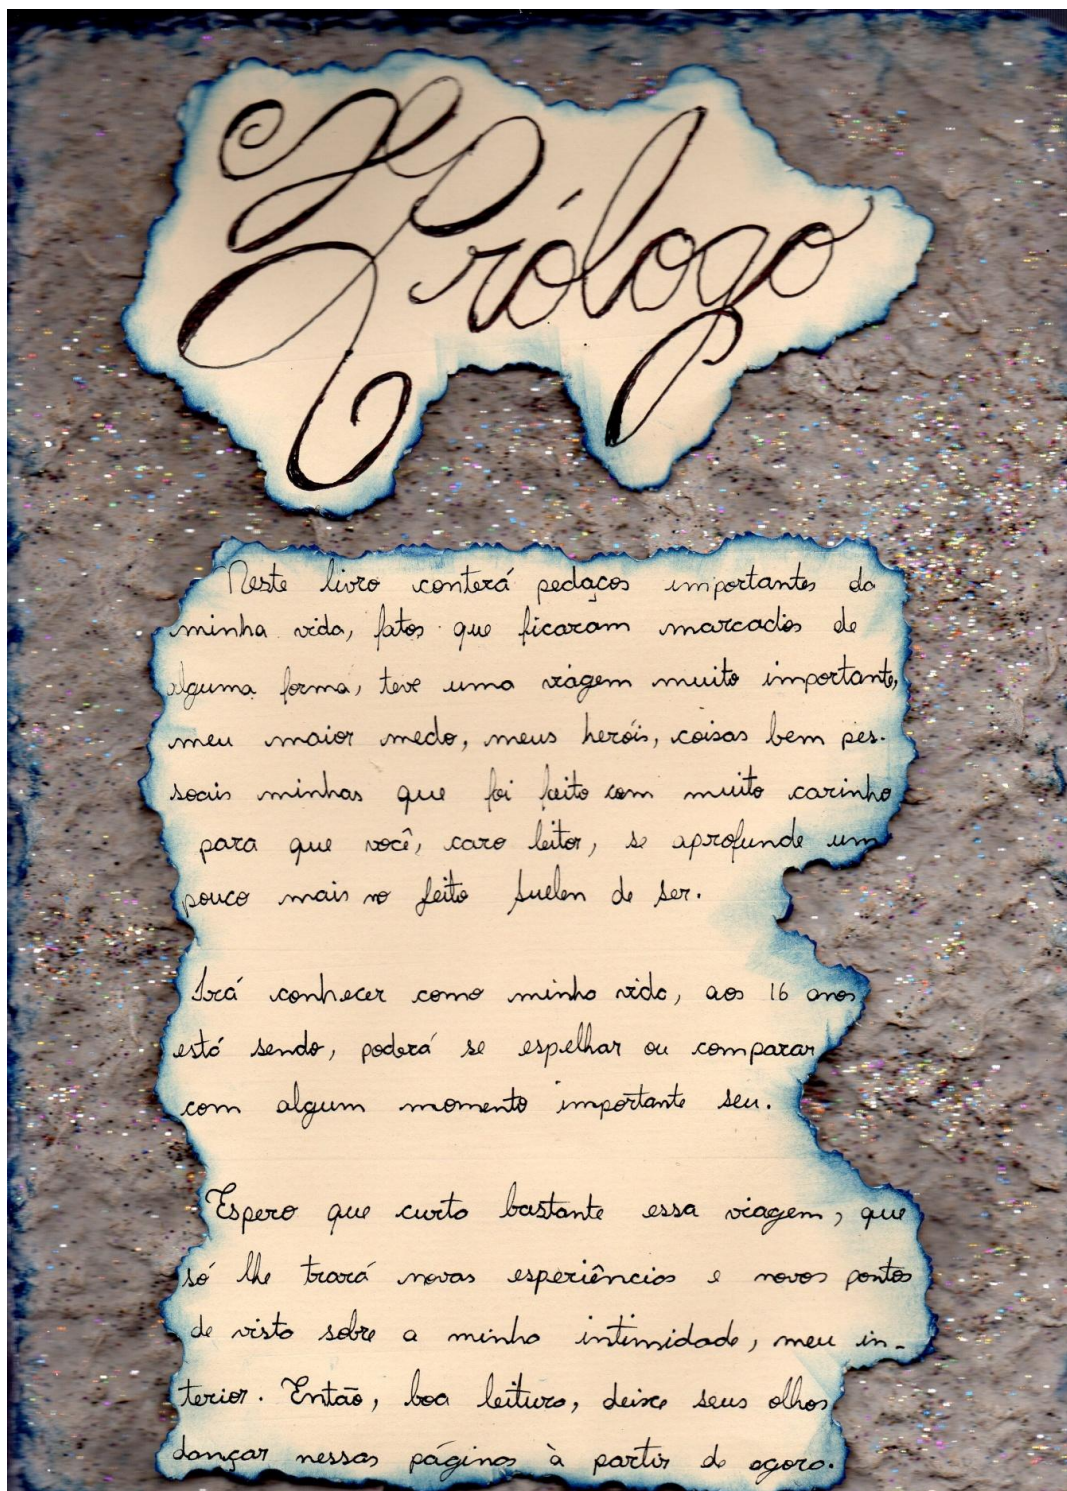 Prólogo
Neste livro conterá pedaços importantes da
minha vida, fatos que ficaram marcados de
alguma forma, teve uma viagem muito importante,
meu maior medo, meus heróis, coisas bem pes-
soais minhas que foi feito com muito carinho
para que você, caro leitor, se aprofunde um
pouco mais no jeito Suelen de ser.
Irá conhecer como minha vida, aos 16 anos
está sendo, poderá se espelhar ou comparar
com algum momento importante seu.
Espero que curta bastante essa viagem, que
só lhe trará novas esperiências e novos pontos
de vista sobre a minha intimidade, meu in-
terior. Então, boa leitura, deixe seus olhos
dançar nessas páginas à partir de agora.